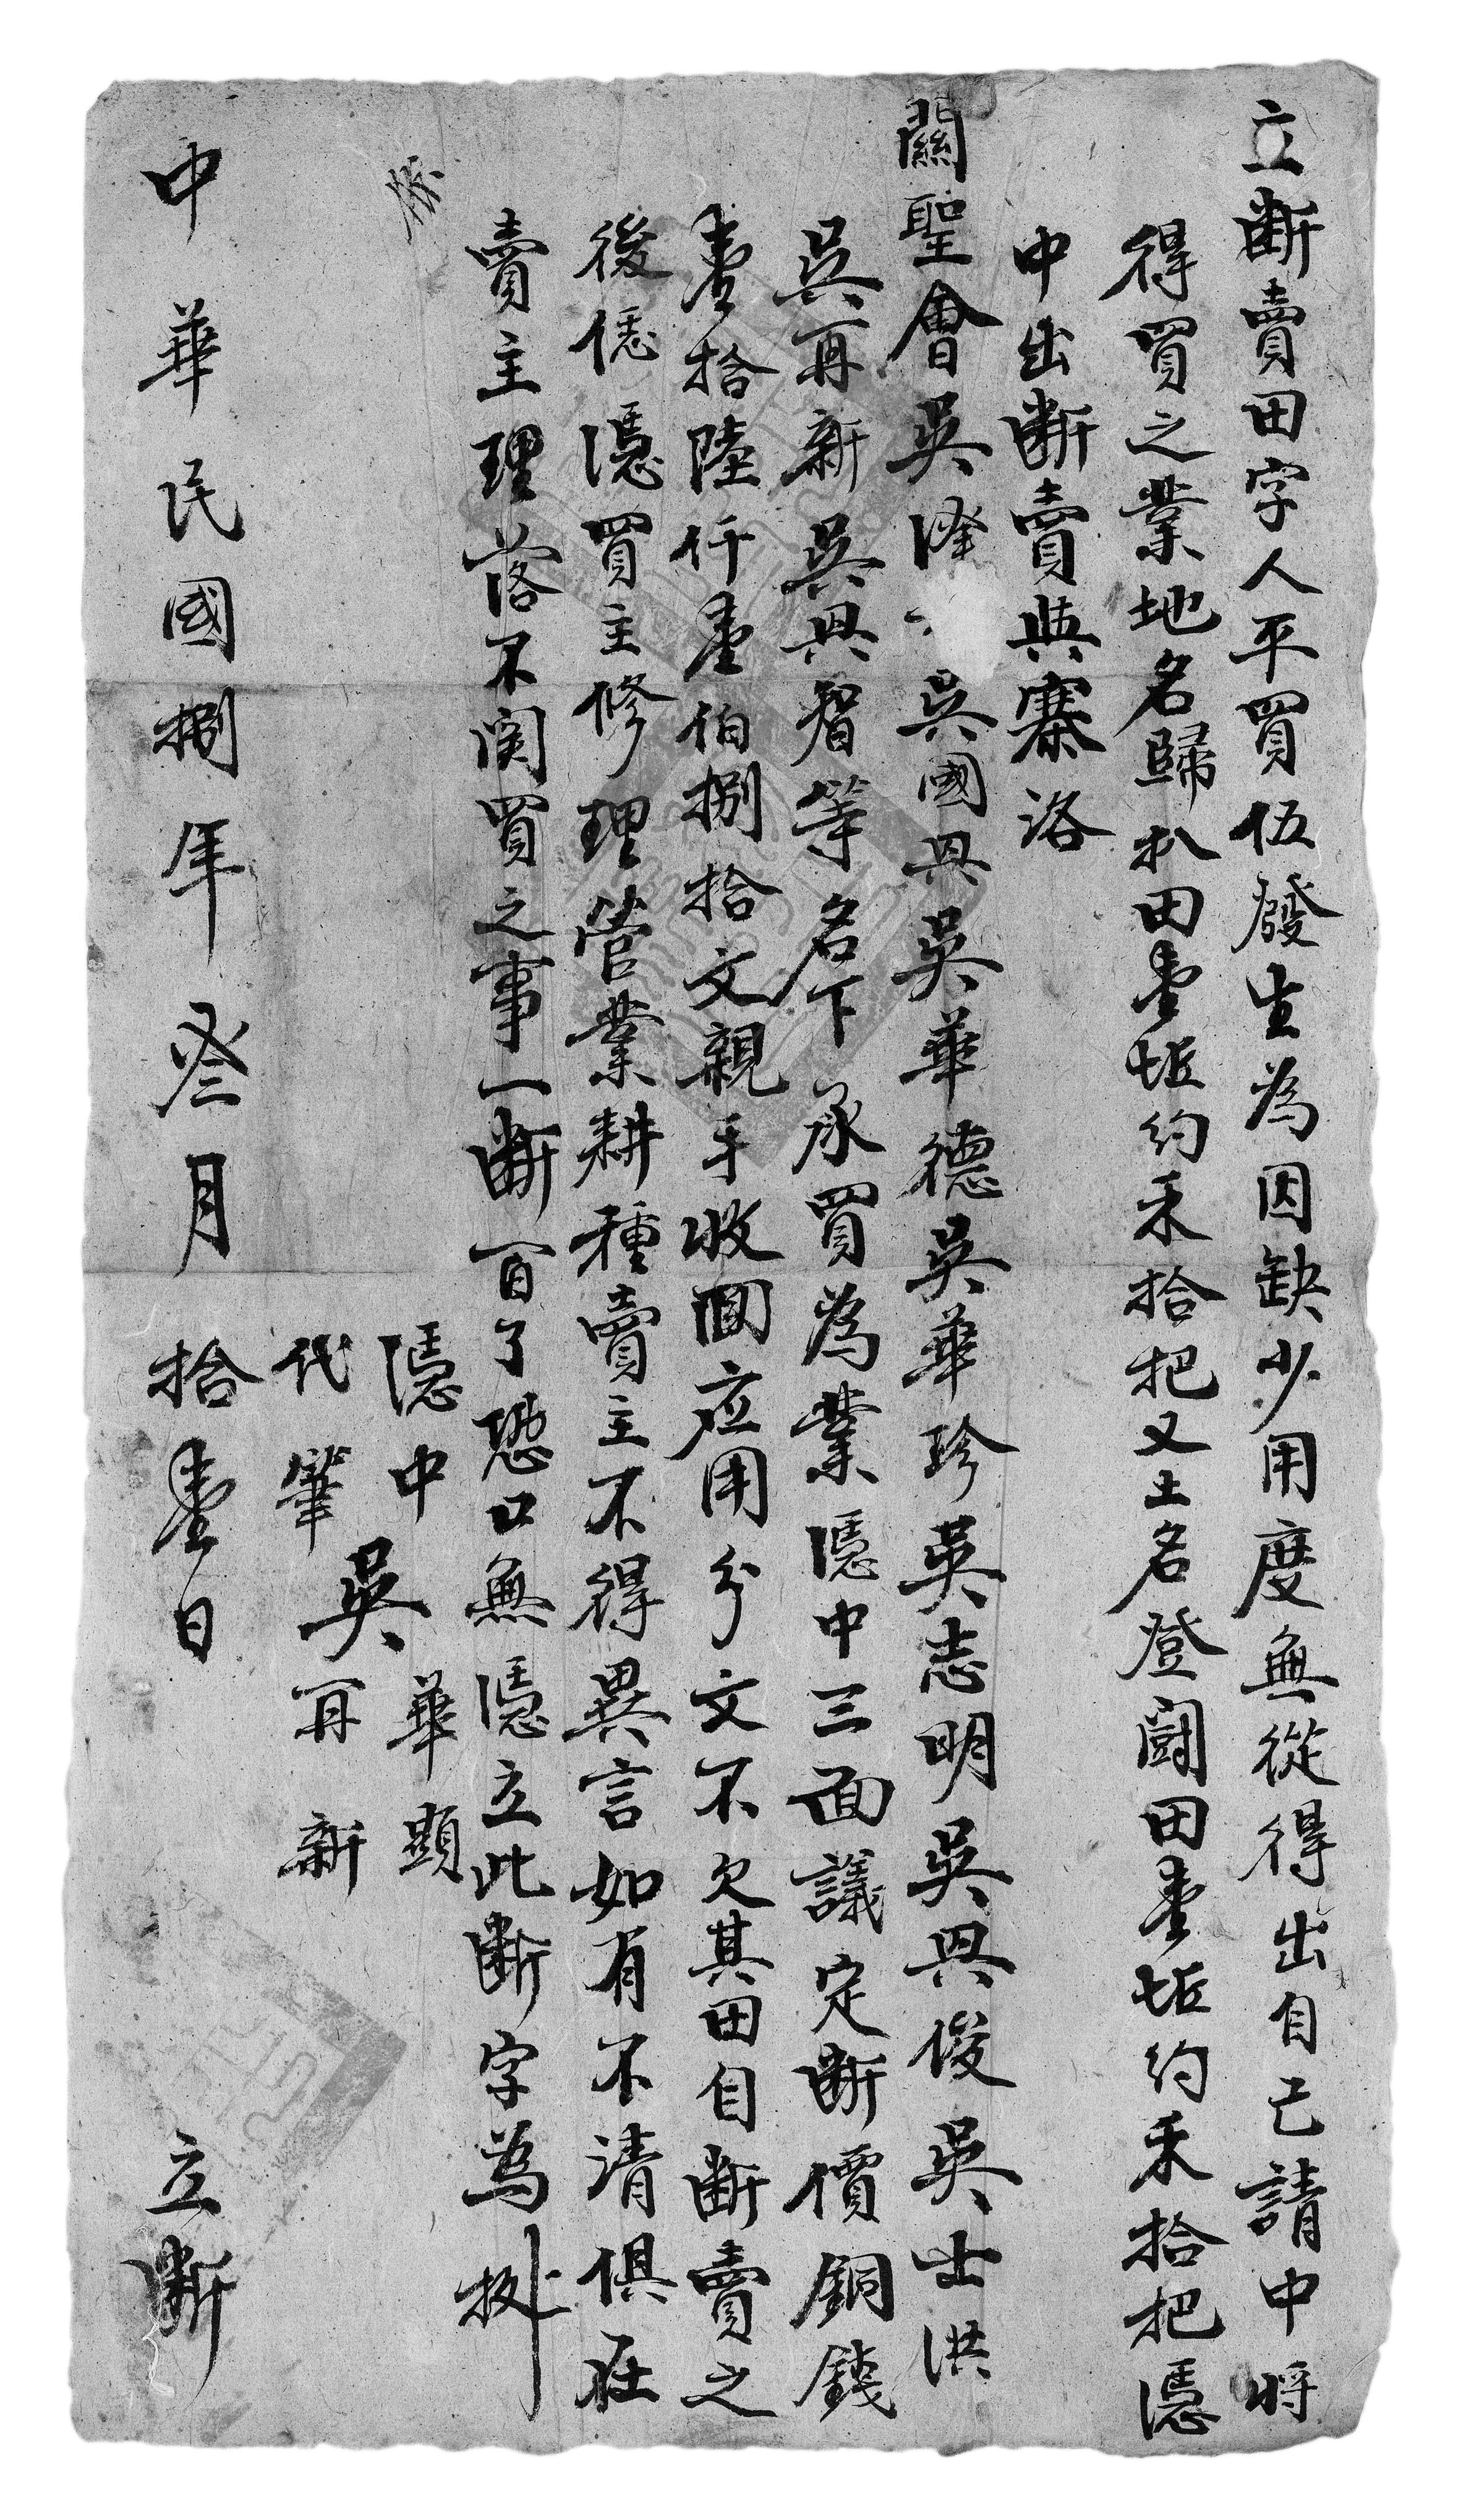 立斷賣田字人平買伍發生為因缺少用度無從得出自己請中將
得買之業地名歸扒田壹坵約禾拾把又土名登閗田壹坵約禾拾把憑
中出斷賣與寨洛
關聖會吳 吳國興吳華德吳華珍吳志明吳興俊吳士洪
吳再新吳興智等名下承買為業憑中三面議定斷價銅錢
壹拾陸仟壹伯捌拾文親手收回应用分文不欠其田自斷賣之
後憑憑買主修理管業耕種賣主不得異言如有不清俱在
賣主理落不関買之事一斷百了恐口無憑立此斷字為據
憑中 吳華顯
代筆 吳再新
中華民國捌年叄月拾壹日 立斷